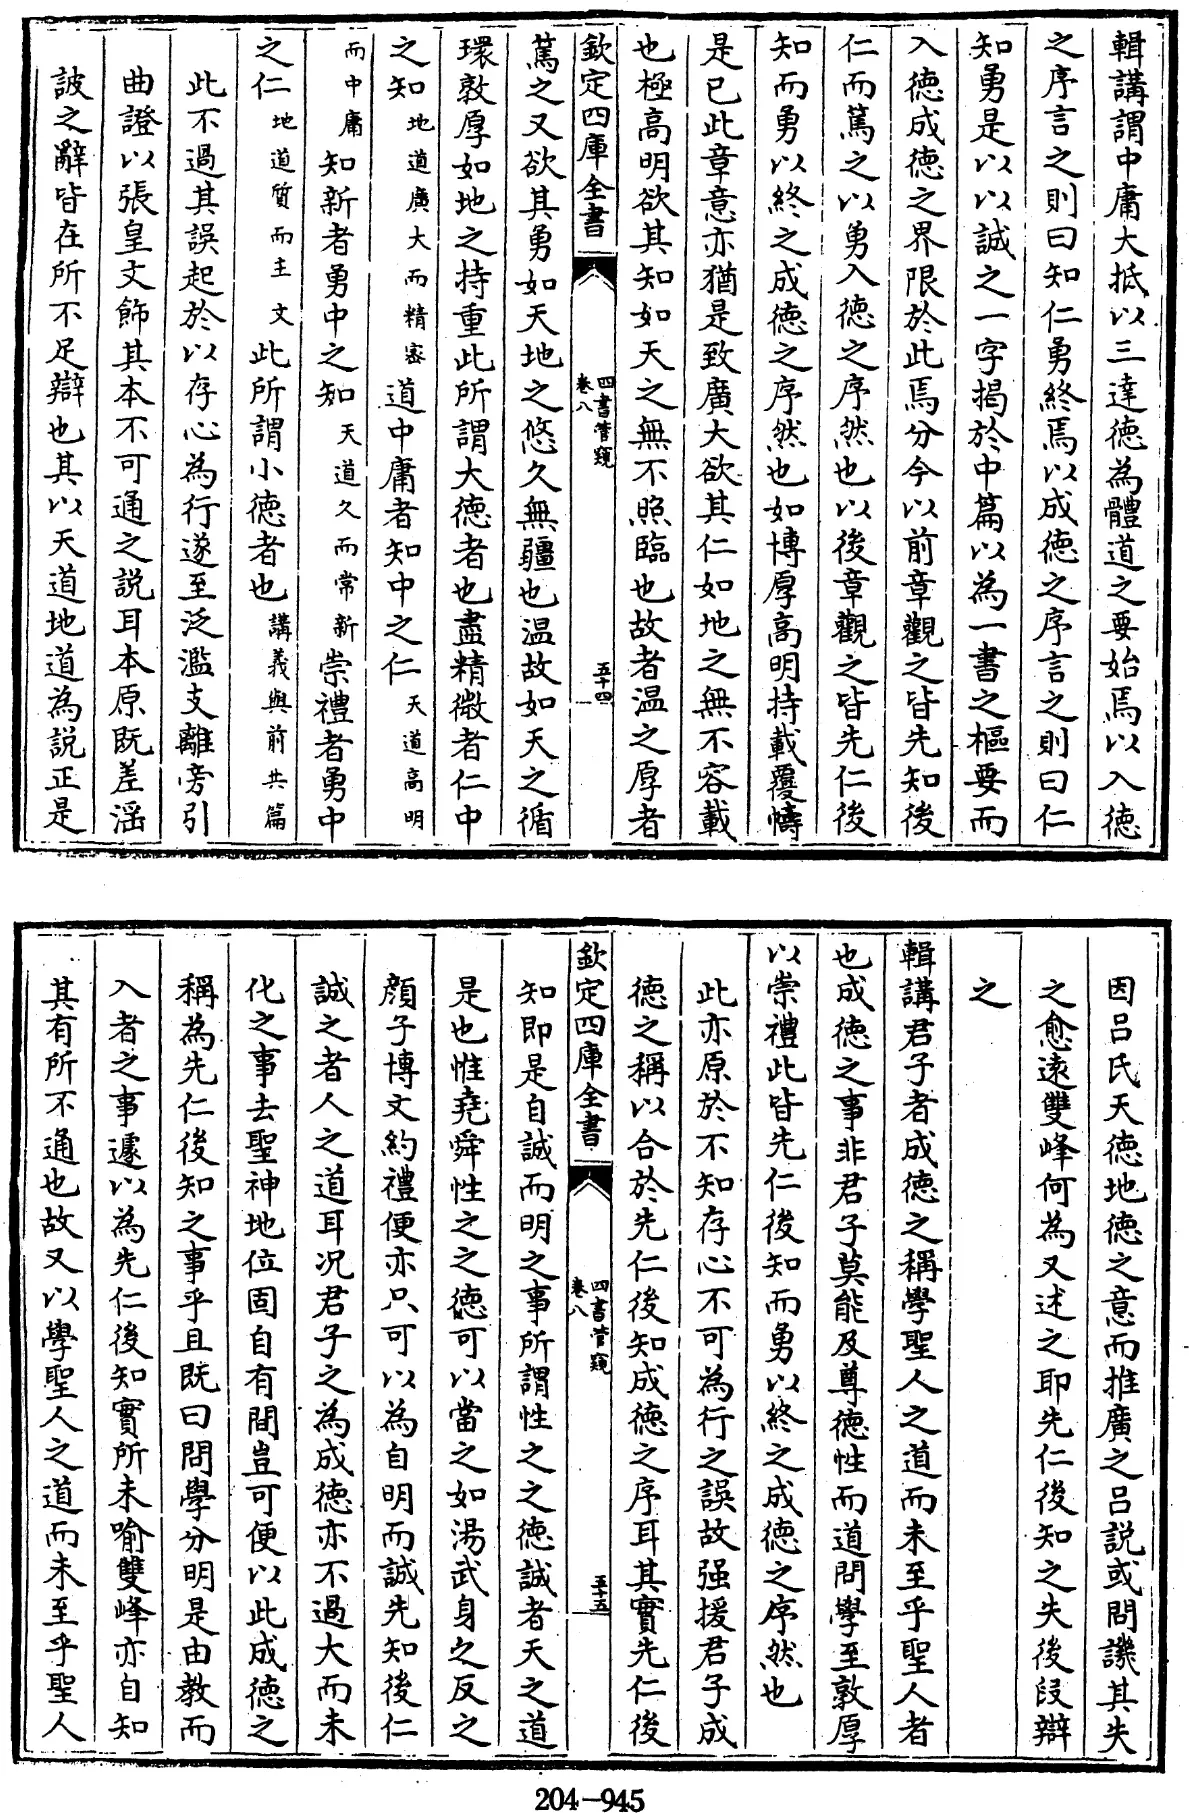 輯講謂中庸大抵以三達徳為體道之要始焉以入徳
之序言之則曰知仁勇終焉以成徳之序言之則曰仁
知勇是以以誠之一字揭於中篇以為一書之樞要而
入徳成徳之界限於此焉分今以前章觀之皆先知後
仁而篤之以勇入徳之序然也以後章觀之皆先仁後
知而勇以終之成徳之序然也如博厚高明持載覆幬
是已此章意亦猶是致廣大欲其仁如地之無不容載
也極高明欲其知如天之無不照臨也故者温之厚者
欽定四庫全書
四書管窺
卷八
五十四
篤之又欲其勇如天地之悠久無疆也温故如天之循
環敦厚如地之持重此所謂大徳者也盡精微者仁中
之知地道廣大而精宻道中庸者知中之仁天道高明
而中庸知新者勇中之知天道久而常新崇禮者勇中
之仁地道質而主文此所謂小徳者也講義與前共篇
此不過其誤起於以存心為行遂至泛濫支離旁引
曲證以張皇文飾其本不可通之説耳本原既差滛
詖之辭皆在所不足辯也其以天道地道為説正是
因吕氏天徳地徳之意而推廣之吕説或問譏其失
之愈遠雙峰何為又述之耶先仁後知之失後段辯
之
輯講君子者成徳之稱學聖人之道而未至乎聖人者
也成徳之事非君子莫能及尊徳性而道問學至敦厚
以崇禮此皆先仁後知而勇以終之成徳之序然也
此亦原於不知存心不可為行之誤故强援君子成
徳之稱以合於先仁後知成徳之序耳其實先仁後
欽定四庫全書
四書管窺
卷八
五十五
知即是自誠而明之事所謂性之之徳誠者天之道
是也惟堯舜性之之徳可以當之如湯武身之反之
顔子博文約禮便亦只可以為自明而誠先知後仁
誠之者人之道耳况君子之為成徳亦不過大而未
化之事去聖神地位固自有間豈可便以此成徳之
稱為先仁後知之事乎且既曰問學分明是由教而
入者之事遽以為先仁後知實所未喻雙峰亦自知
其有所不通也故又以學聖人之道而未至乎聖人
204-945